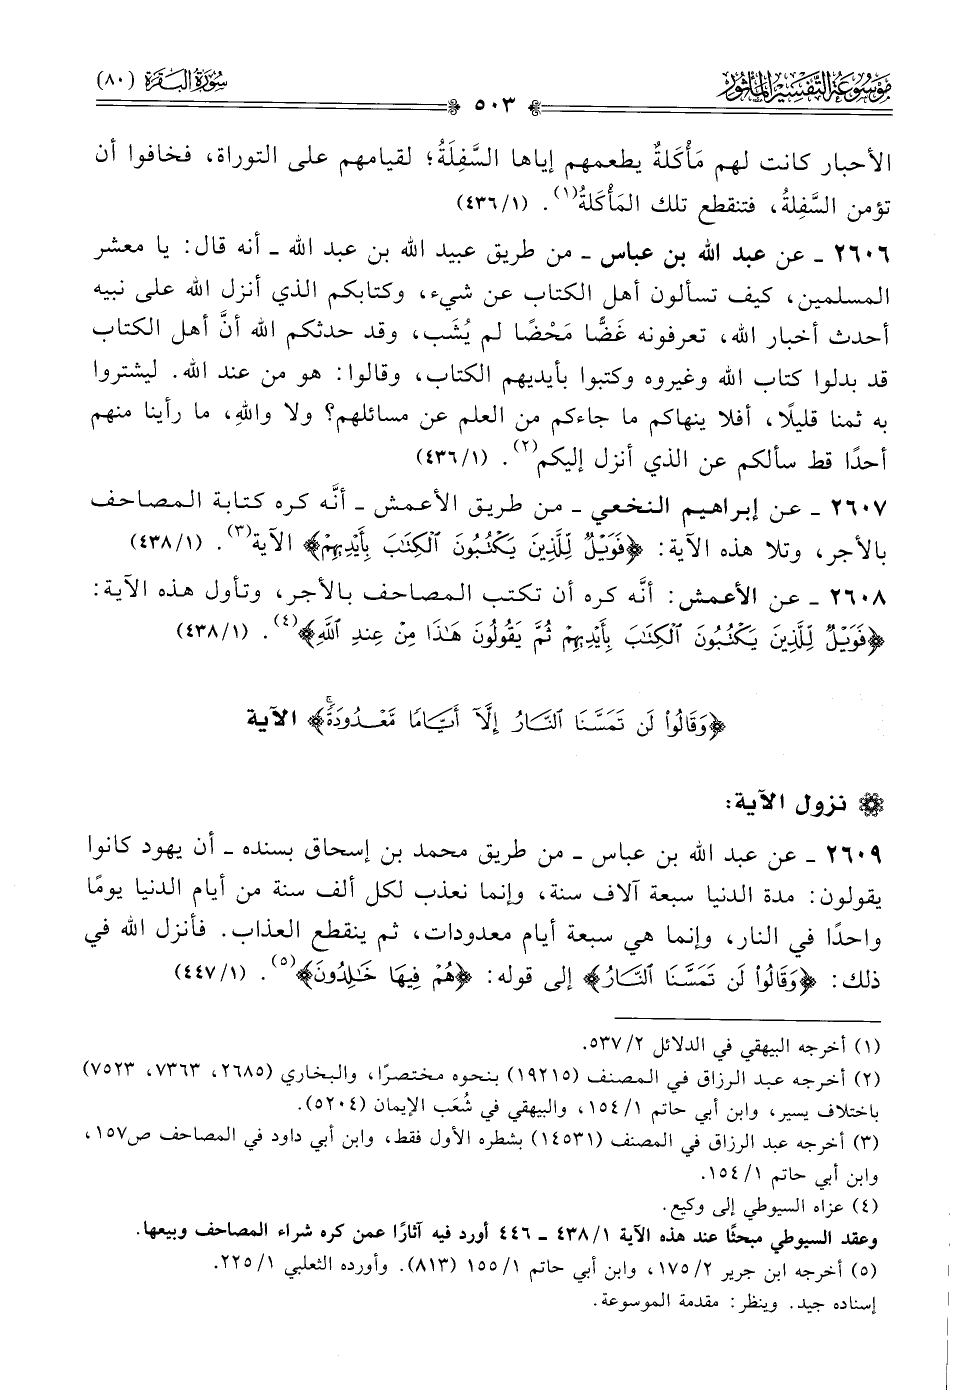 مَوْسُوعَة التَّفْسِيْر المَأْثُور
٥٠٣
سُورَةُ البَقَرَة (٨٠)
الأحبار كانت لهم مَأْكَلةٌ يطعمهم إياها السَّفِلَةُ؛ لقيامهم على التوراة، فخافوا أن
تؤمن السَّفِلةُ، فتنقطع تلك المَأْكَلةُ(١). (٤٣٦/١)
٢٦٠٦ ـ عن عبد الله بن عباس ـ من طريق عبيد الله بن عبد الله ـ أنه قال: يا معشر
المسلمين، كيف تسألون أهل الكتاب عن شيء، وكتابكم الذي أنزل الله على نبيه
أحدث أخبار الله، تعرفونه غَضًّا مَحْضًا لم يُشَب، وقد حدثكم الله أنَّ أهل الكتاب
قد بدلوا كتاب الله وغيروه وكتبوا بأيديهم الكتاب، وقالوا: هو من عند الله. ليشتروا
به ثمنا قليلًا، أفلا ينهاكم ما جاءكم من العلم عن مسائلهم؟ ولا واللهِ، ما رأينا منهم
أحدًا قط سألكم عن الذي أنزل إليكم(٢). (٤٣٦/١)
٢٦٠٧ ـ عن إبراهيم النخعي ـ من طريق الأعمش ـ أنَّه كره كتابة المصاحف
بالأجر، وتلا هذه الآية: ﴿فَوَيْلٌ لِّلَّذِينَ يَكْتُبُونَ ٱلْكِتَٰبَ بِأَيْدِيهِمْ﴾ الآية(٣). (٤٣٨/١)
٢٦٠٨ ـ عن الأعمش: أنَّه كره أن تكتب المصاحف بالأجر، وتأول هذه الآية:
﴿فَوَيْلٌ لِّلَّذِينَ يَكْتُبُونَ ٱلْكِتَٰبَ بِأَيْدِيهِمْ ثُمَّ يَقُولُونَ هَٰذَا مِنْ عِندِ ٱللَّهِ﴾(٤). (٤٣٨/١)
﴿وَقَالُوا۟ لَن تَمَسَّنَا ٱلنَّارُ إِلَّآ أَيَّامًا مَّعْدُودَةًۚ﴾ الآية
نزول الآية:
٢٦٠٩ ـ عن عبد الله بن عباس ـ من طريق محمد بن إسحاق بسنده ـ أن يهود كانوا
يقولون: مدة الدنيا سبعة آلاف سنة، وإنما نعذب لكل ألف سنة من أيام الدنيا يومًا
واحدًا في النار، وإنما هي سبعة أيام معدودات، ثم ينقطع العذاب. فأنزل الله في
ذلك: ﴿وَقَالُوا۟ لَن تَمَسَّنَا ٱلنَّارُ﴾ إلى قوله: ﴿هُمْ فِيهَا خَٰلِدُونَ﴾(٥). (٤٤٧/١)
(١) أخرجه البيهقي في الدلائل ٥٣٧/٢.
(٢) أخرجه عبد الرزاق في المصنف (١٩٢١٥) بنحوه مختصرًا، والبخاري (٢٦٨٥، ٧٣٦٣، ٧٥٢٣)
باختلاف يسير، وابن أبي حاتم ١٥٤/١، والبيهقي في شُعَب الإيمان (٥٢٠٤).
(٣) أخرجه عبد الرزاق في المصنف (١٤٥٣١) بشطره الأول فقط، وابن أبي داود في المصاحف ص١٥٧،
وابن أبي حاتم ١٥٤/١.
(٤) عزاه السيوطي إلى وكيع.
وعقد السيوطي مبحثًا عند هذه الآية ٤٣٨/١ ـ ٤٤٦ أورد فيه آثارًا عمن كره شراء المصاحف وبيعها.
(٥) أخرجه ابن جرير ١٧٥/٢، وابن أبي حاتم ١٥٥/١ (٨١٣). وأورده الثعلبي ٢٢٥/١.
إسناده جيد. وينظر: مقدمة الموسوعة.